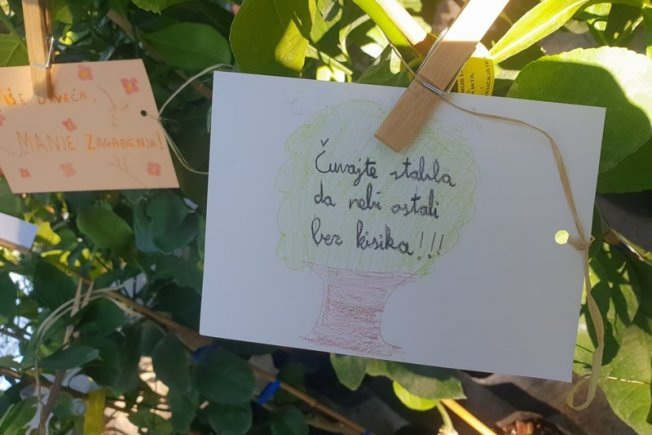 IŠE DRVEĆA,
MANJE ZAGAĐENJA!
Čuvajte stabla
da nebi ostali
bez kisika!!!